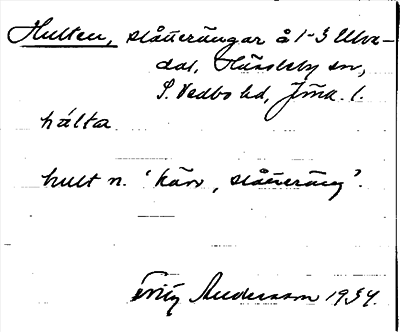 Hulten, slåtterängar å 1-3 Ulva-
dal, Hässleby sn,
S. Vedbo hd, Jmd. l.
hálta
hult n. 'kärr, slåtteräng'.
Fritz Andersson 1934.